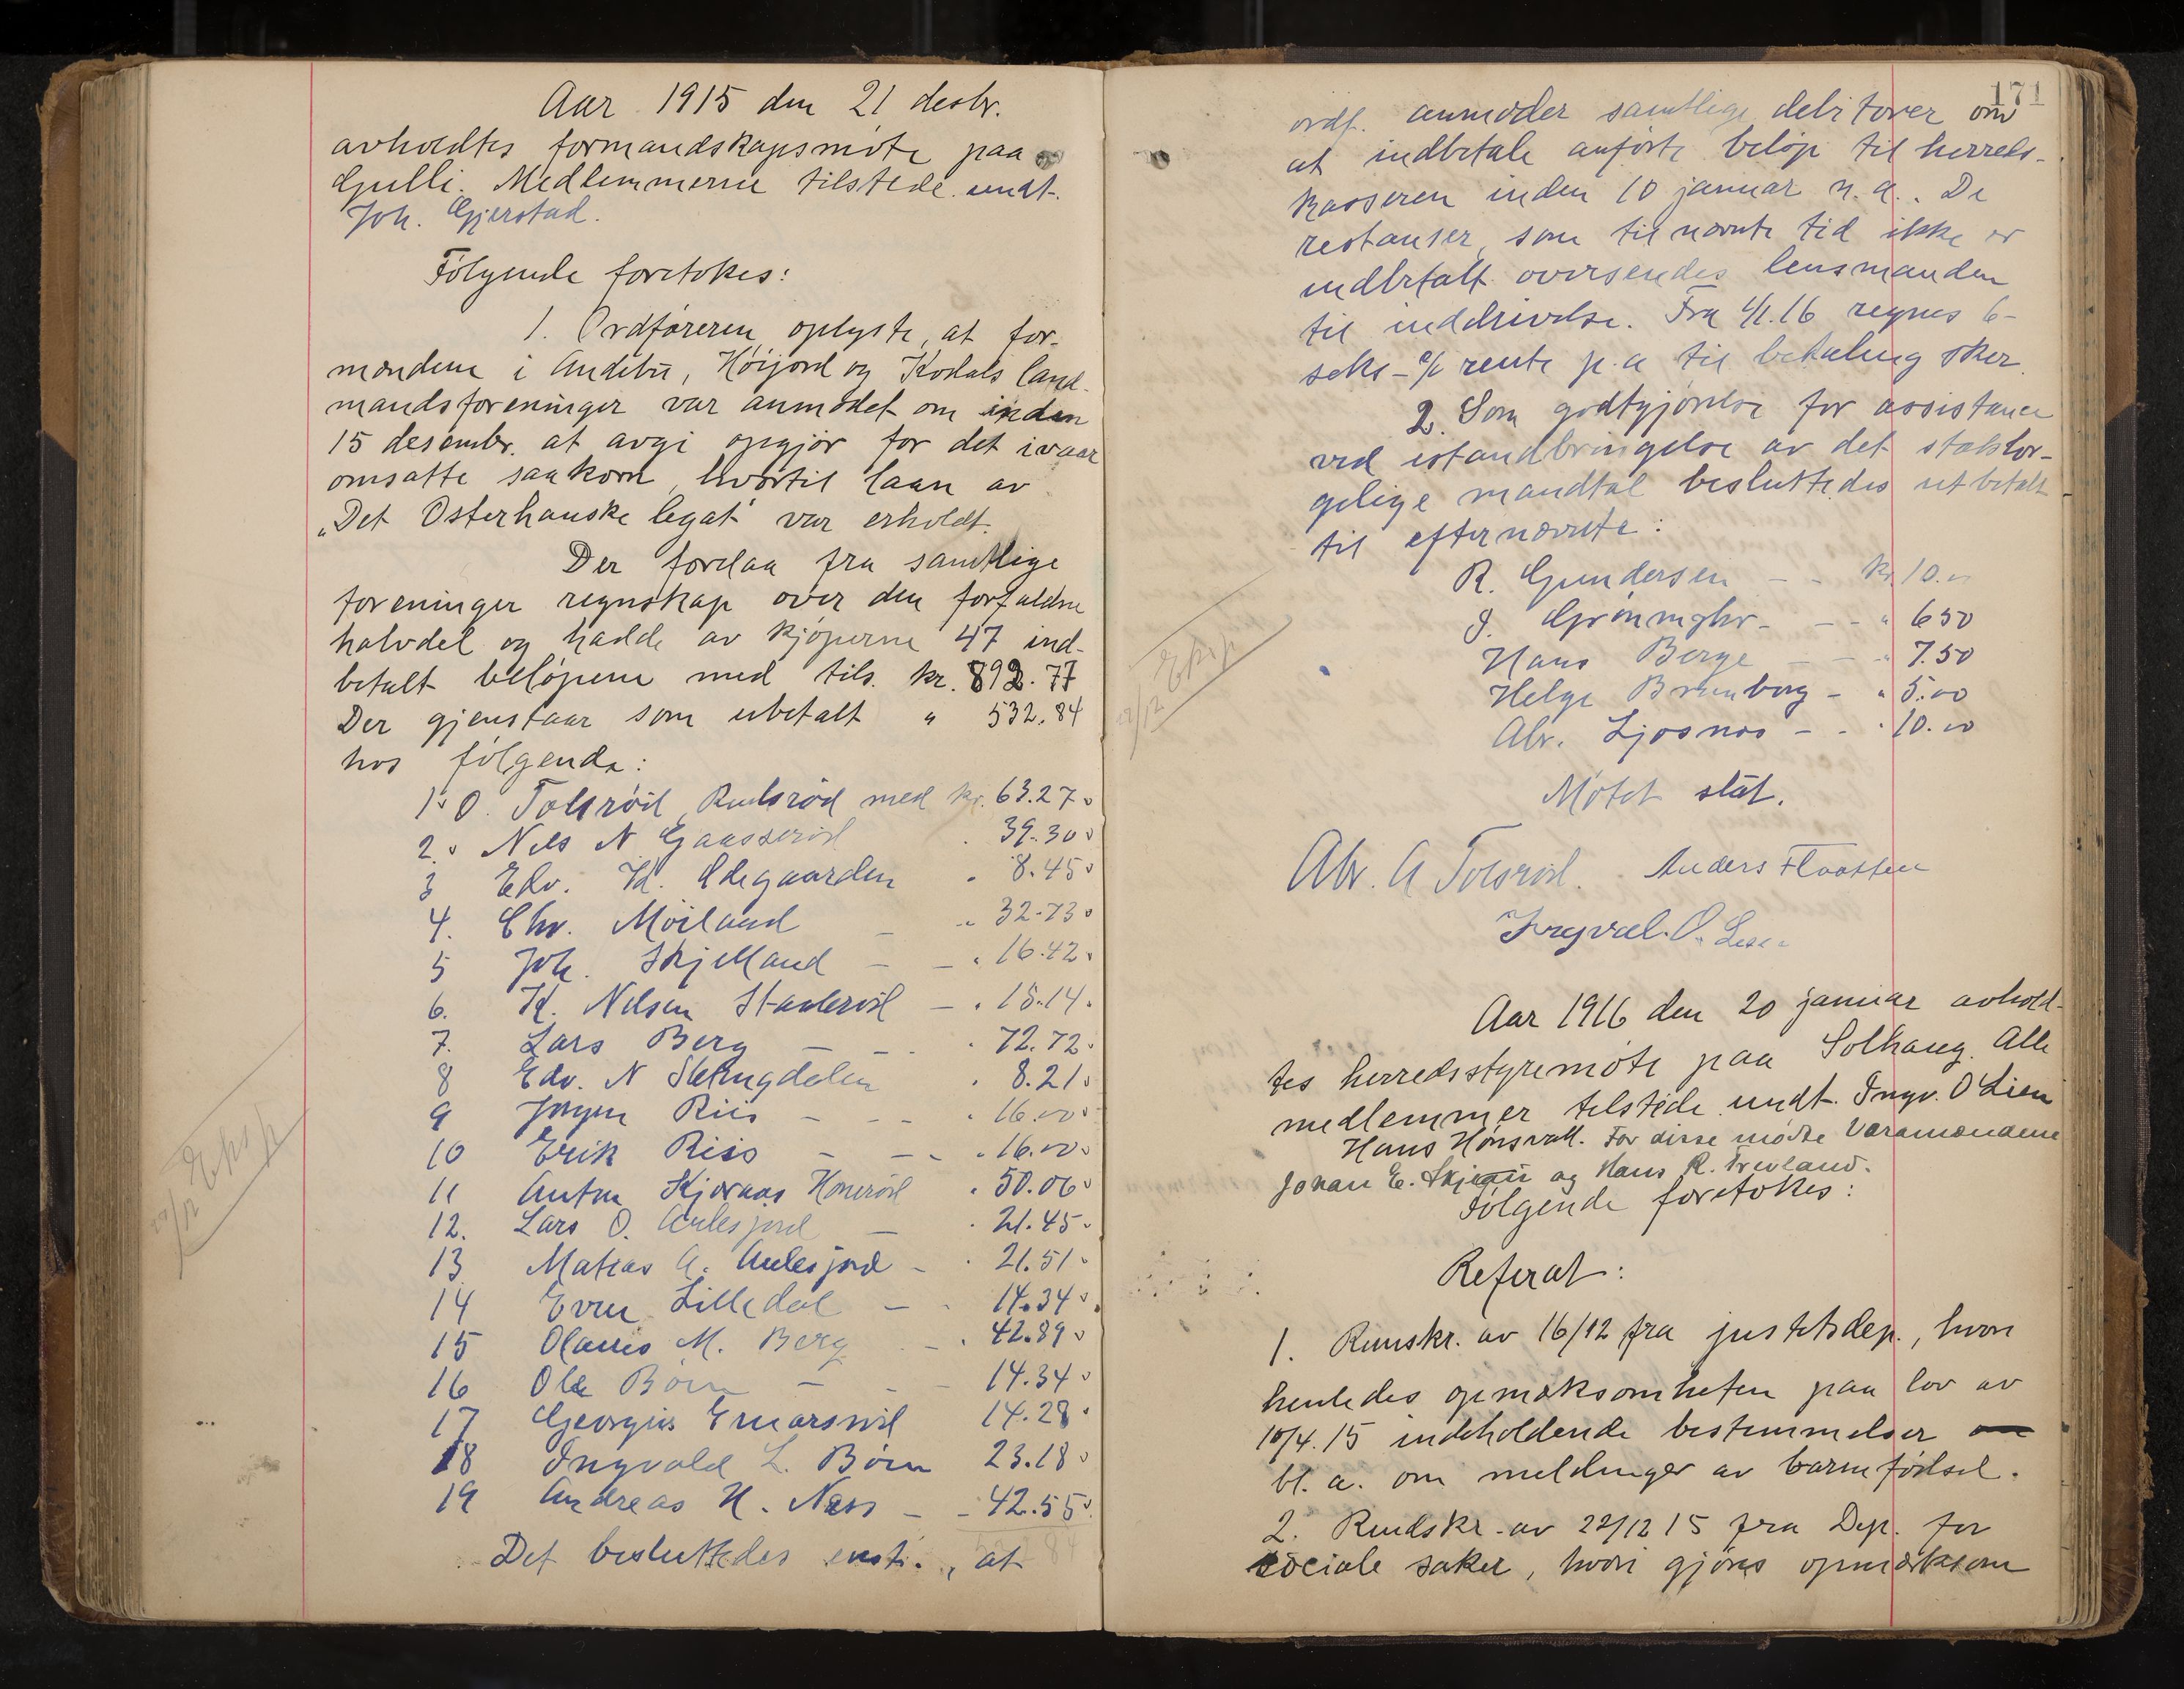 Aar 1915 den 21 desbr.
avholdtes formandskapsmöte paa
Gulli. Medlemmerne tilstede undt.
Joh. Gjerstad.
Fölgende foretokes:
1. Ordföreren oplyste, at for-
mændene i Andebu, Höijord og Kodals land-
mandsforeninger var anmodet om inden
15 desembr. at avgi opgjör for det ivaar
omsatte saakorn, hvortil laan av
„Det Osterhauske legat" var erholdt.
Der forelaa fra samtlige
foreninger regnskap over den forfaldne
halvdel og hadde av kjöperne 47 ind-
betalt belöpene med tils. kr. 892.77
Der gjenstaar som ubetalt " 532.84
hos fölgende:
1. O. Tolsröd, Rulsröd med kr. 63.27
2. Nils N Gaasseröd 39.30
3 Edv. Kl. Ödegaarden 8.45
4. Chr. Möiland - " 32.73
5 Joh. Skjelland - - " 16.42
6. K. Nilsen Staaleröd - " 18.14
7. Lars Berg - - 72.72
8 Edv. N Slettingdalen 8.21
9 Jörgen Riis - - - 16.00
10 Erik Riis - - - 16.00
11 Anton Kjæraas Honeröd 50.06
12. Lars O. Aulesjord - 21.45
13 Matias A. Aulesjord - 21.51
14 Even Lilledal - - 14.34
15 Olaus M. Berg - 42.89
16 Ole Böen - - - 14.34
17 Georgius Einarsröd 14.28
18 Ingvald L. Böen 23.18
19 Andreas H. Næss - - 42.55
Det besluttedes enst., at
22/12 Eksp
171
ordf. anmoder samtlige debitorer om
at indbetale anförte belöp til herreds-
kasseren inden 10 januar n.a. De
restanser, som til nævnte tid ikke er
indbetalt oversendes lensmanden
til inddrivelse. Fra 1/1.16 regnes 6-
seks- % rente p.a til betaling sker.
2. Som godtgjörelse for assistance
ved istandbringelse av det stataor-
gelige mandtal besluttedes utbetalt
til efternævnte:
R. Gundersen - - kr 10.00
J. Grönningsæter - - " 6 50
Hans Berge - - " 7.50
Helge Brunborg - " 5.00
Abr. Ljosnos - - " 10.00
22/12 Eksp
Mötet slut.
Abr. A Tolsröd. Anders Flaatten
Ingval. O. Lien
Aar 1916 den 20 januar avhold-
tes herredsstyremöte paa Solhaug. Alle
medlemmer tilstede undt. Ingv. O Lien
Hans Hönsvall. For disse mödte Varamændene
Johan E. Skjeau og Hans R. Trevland.
Fölgende foretokes:
Referat:
1. Rundskr. av 16/12 fra justitsdep., hvori
henledes opmæksomheten paa lov av
10/4.15 indeholdende bestemmelser
bl. a. om meldinger av barnefödsel.
2. Rundskr. av 22/12 15 fra Dep. for
sociale saker, hvori gjöres opmærksom